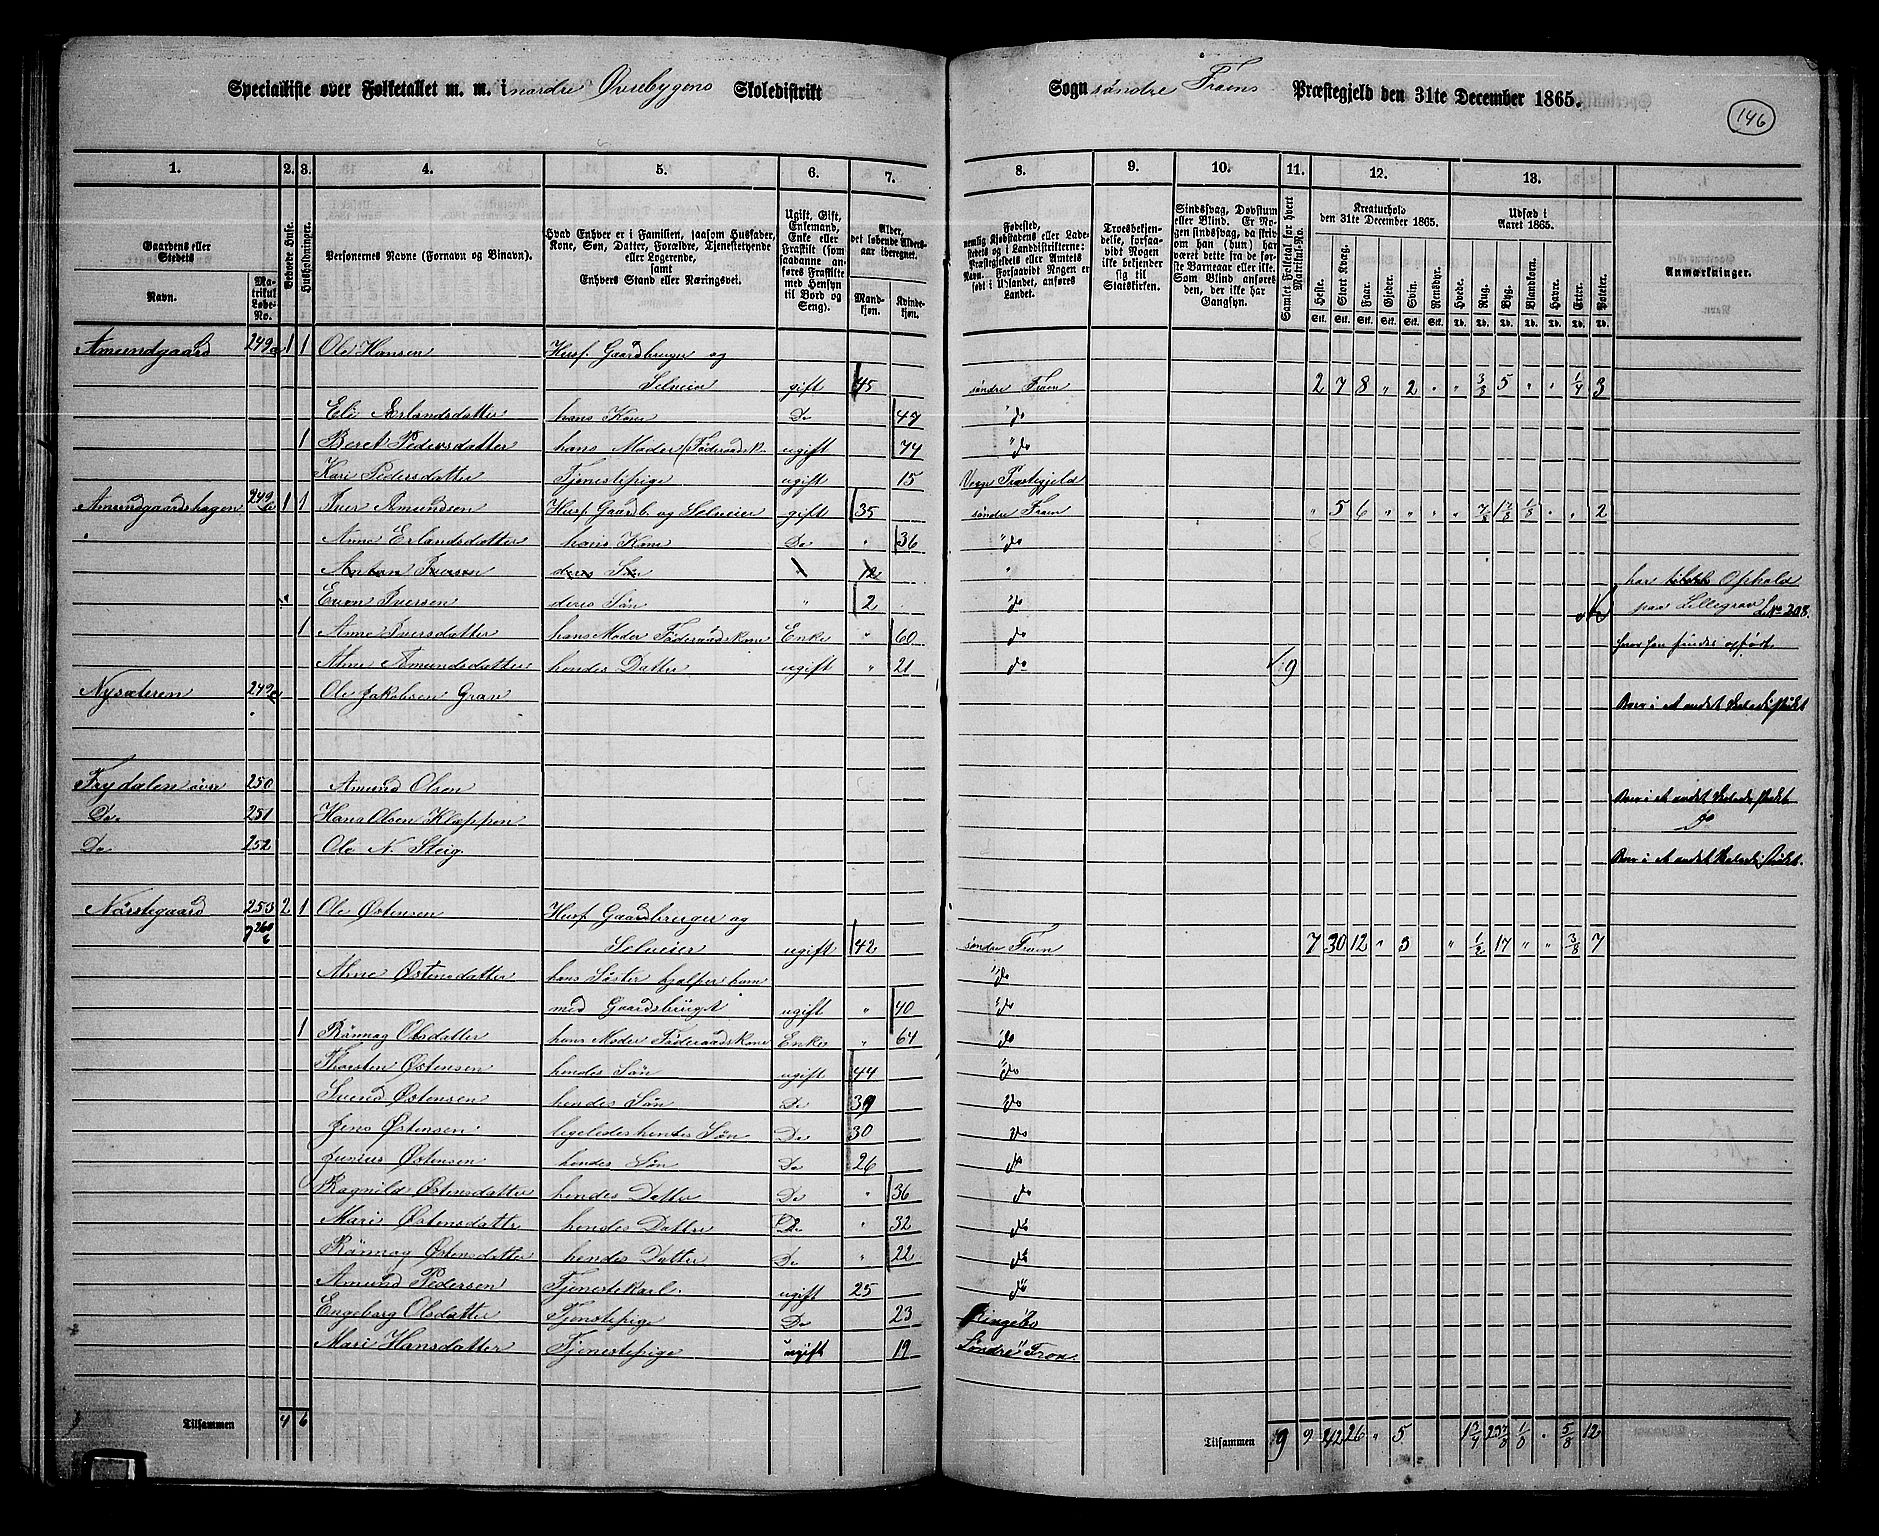 Specialliste over Folketallet m. m. i nordre Øvrebygens Skoledistrikt
Sogn søndre Frons Præstegjeld den 31te December 1865.
146
1. 2. 3. 4. 5. 6. 7. 8. 9. 10. 11. 12. 13.
Gaardens eller Stedets
Navn.
Matrikul Løbe-No.
Beboede Huse.
Husholdninger.
Personernes Navne (Fornavn og Binavn).
Hvad Enhver er i Familien, saasom Husfader, Kone, Søn, Datter, Forældre, Tjenestetyende eller Logerende, samt Enhvers Stand eller Næringsvei.
Ugift, Gift, Enkemand, Enke eller Fraskilt (saadanne anføres Fraskilte med Hensyn til Bord og Seng).
Alder, det løbende Alders-aar iberegnet.
Mandkjøn.
Kvindekjøn.
Troesbekjendelse, forsaavidt Nogen ikke bekjender sig til Statskirken.
Sindssvag, Døvstum eller Blind.
Samlet Folketal for hvert Matrikul-No.
Kreaturhold den 31te December 1865.
Udsæd i Aaret 1865.
Heste. Stort Kvæg. Faar. Gjeder. Svin. Rensdyr. Hvede. Rug. Byg. Blandkorn. Havre. Erter. Poteter.
Anmærkninger.
Amundgaard 249a 1 1 Ole Hansen Husf. Gaardbruger og
Selveier gift 45 søndre Fron 2 7 8 " 2 " " 3/8 5 " " 1/4 3
Eli Aerlandsdatter hans Kone Do 47 "do
1 Beret Pedersdatter hans Moder, Føderaadsk. ugift 74 "do
Kari Pedersdatter Tjenestepige ugift 15 Præstegjeld
Amundgaardshagen 249b 1 1 Iver Amundsen Husf. Gaardb. og Selveier gift 35 søndre Fron " 5 6 2
Anne Erlandsdatter hans Kone Do " 36 "do
Anton Iversen deres Søn " 12 " har Ophold
Even Iversen deres Søn " 2 "do paa Lillegrav LNo 208.
1 Anne Iversdatter hans Moder Føderaadskone Enke " 60 do hvor han findes opført.
Anne Amundsdatter hendes Datter ugift " 21 do 9
Nysæteren 249c Ole Jakobsen Gran Boer i et andet Skoledistrikt
Frydalen øvre 250 Amund Olsen Boer i et andet Skoledistrikt
Do. 251 Hans Olsen Kleppen Do
Do 252 Ole N. Steig. Boer i et andet Skoledistrikt.
Nørstegaard 253 2 1 Ole Østensen Husf Gaardbruger og
260 Selveier ugift 42 søndre Fron 7 30 12 " 3 " 1/2 17 " " 3/8 7
Anne Østensdatter hans Søster hjælper ham "do
med Gaardsbruget ugift " 40 "do
1 Rønnog Olsdatter hans Moder Føderaadskone Enke " 64 do
Thorsten Østensen hendes Søn ugift 44 "do
Svend Østensen hendes Søn Do 39 Do
Jens Østensen ligeledes hendes Søn Do 30 Do
Junius Østensen hendes Søn Do 26 do
Ragnild Østensdatter hendes Datter Do " 36 do
Mari Østensdatter hendes Datter Do " 32 do
Rønnog Østensdatter hendes Datter Do " 22 do
Amund Pedersen Tjenestekarl. ugift 25 do
Engeborg Olsdatter Tjenstepige Do 23 Ringebo
Mari Hansdatter Tjenestepige ugift 19 Søndre Fron.
Tilsammen 4 6
Tilsammen 9 42 26 " 5 5/8 12